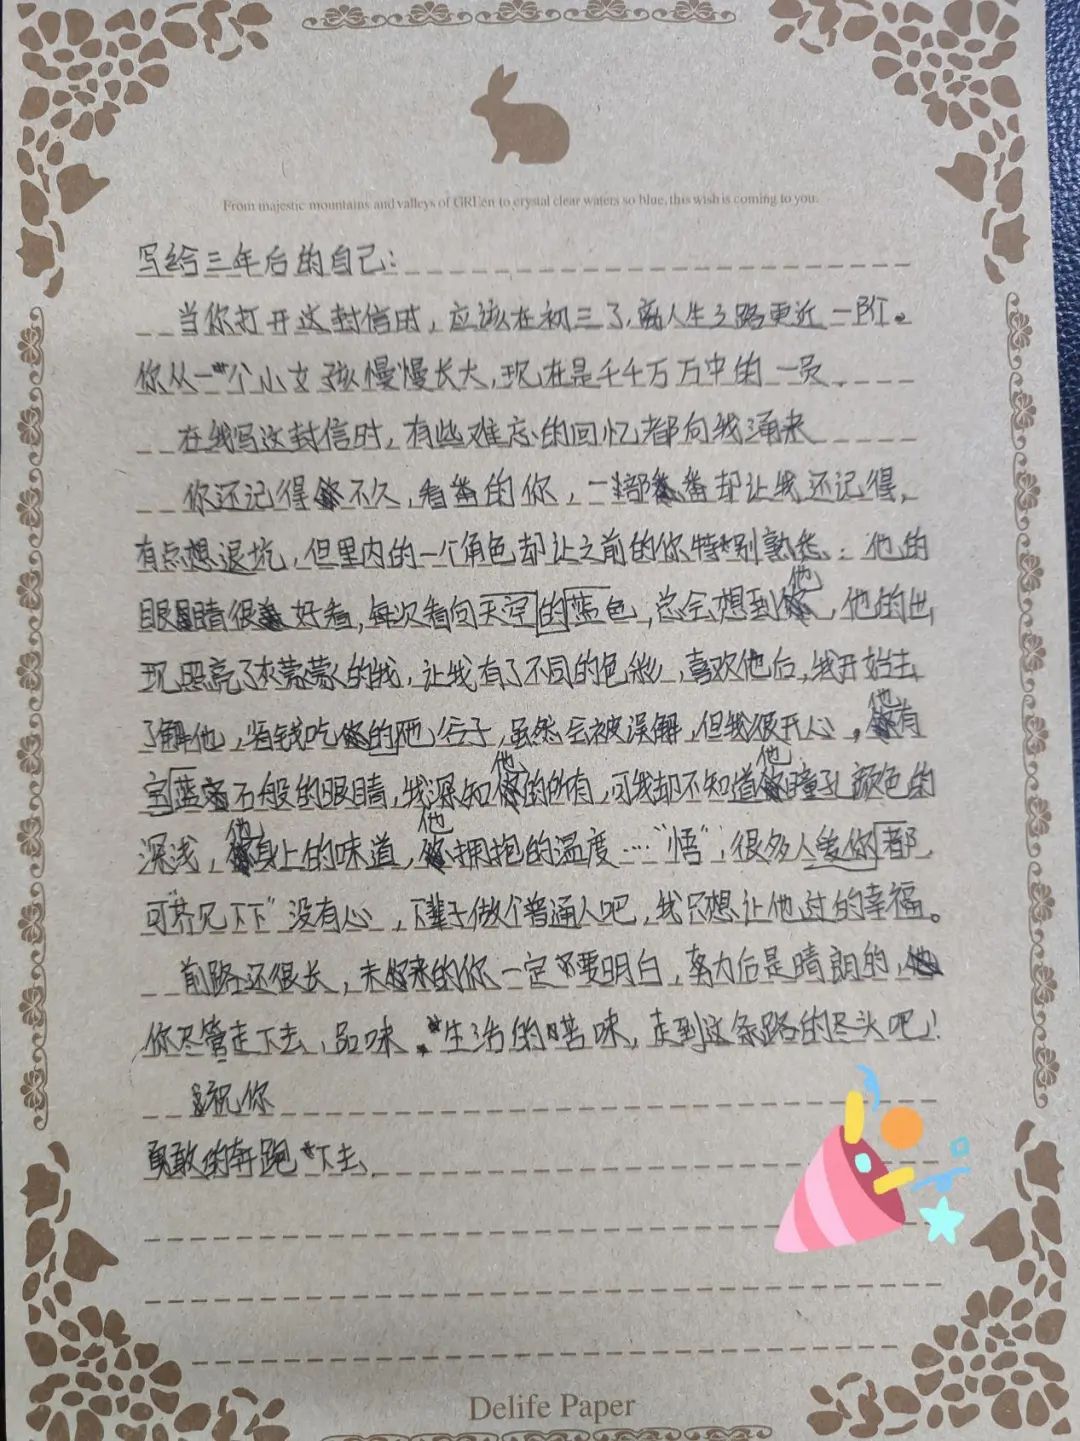 From majestic mountains and valleys of GREen to crystal clear waters so blue, this wish is coming to you.
写给三年后的自己:
当你打开这封信时,应该在初三了,离人生之路更近一阶。
你从一个小女孩慢慢长大,现在是千千万万中的一员.
在我写这封信时,有些难忘的回忆都向我涌来
你还记得不久,看番的你,一部番却让我还记得,
有点想退坑,但里内的一个角色却让之前的你特别熟悉:他的
眼睛很好看,每次看向天空的蓝色,总会想到他,他的出
现照亮了灰蒙蒙的我,让我有了不同的色彩,喜欢他后,我开始去
了解他,省钱吃他的谷子,虽然会被误解,但我很开心,他有
宝蓝石般的眼睛,我深知他的所有,可我却不知道他瞳孔颜色的
深浅,他身上的味道,他拥抱的温度…"悟",很多人爱你都,
可"芥见下下"没有心,下辈子做个普通人吧,我只想让他过的幸福。
前路还很长,未来的你一定要明白,努力后是晴朗的,
你尽管走下去,品味生活的苦味,走到这条路的尽头吧!
祝你
勇敢的奔跑下去.
Delife Paper